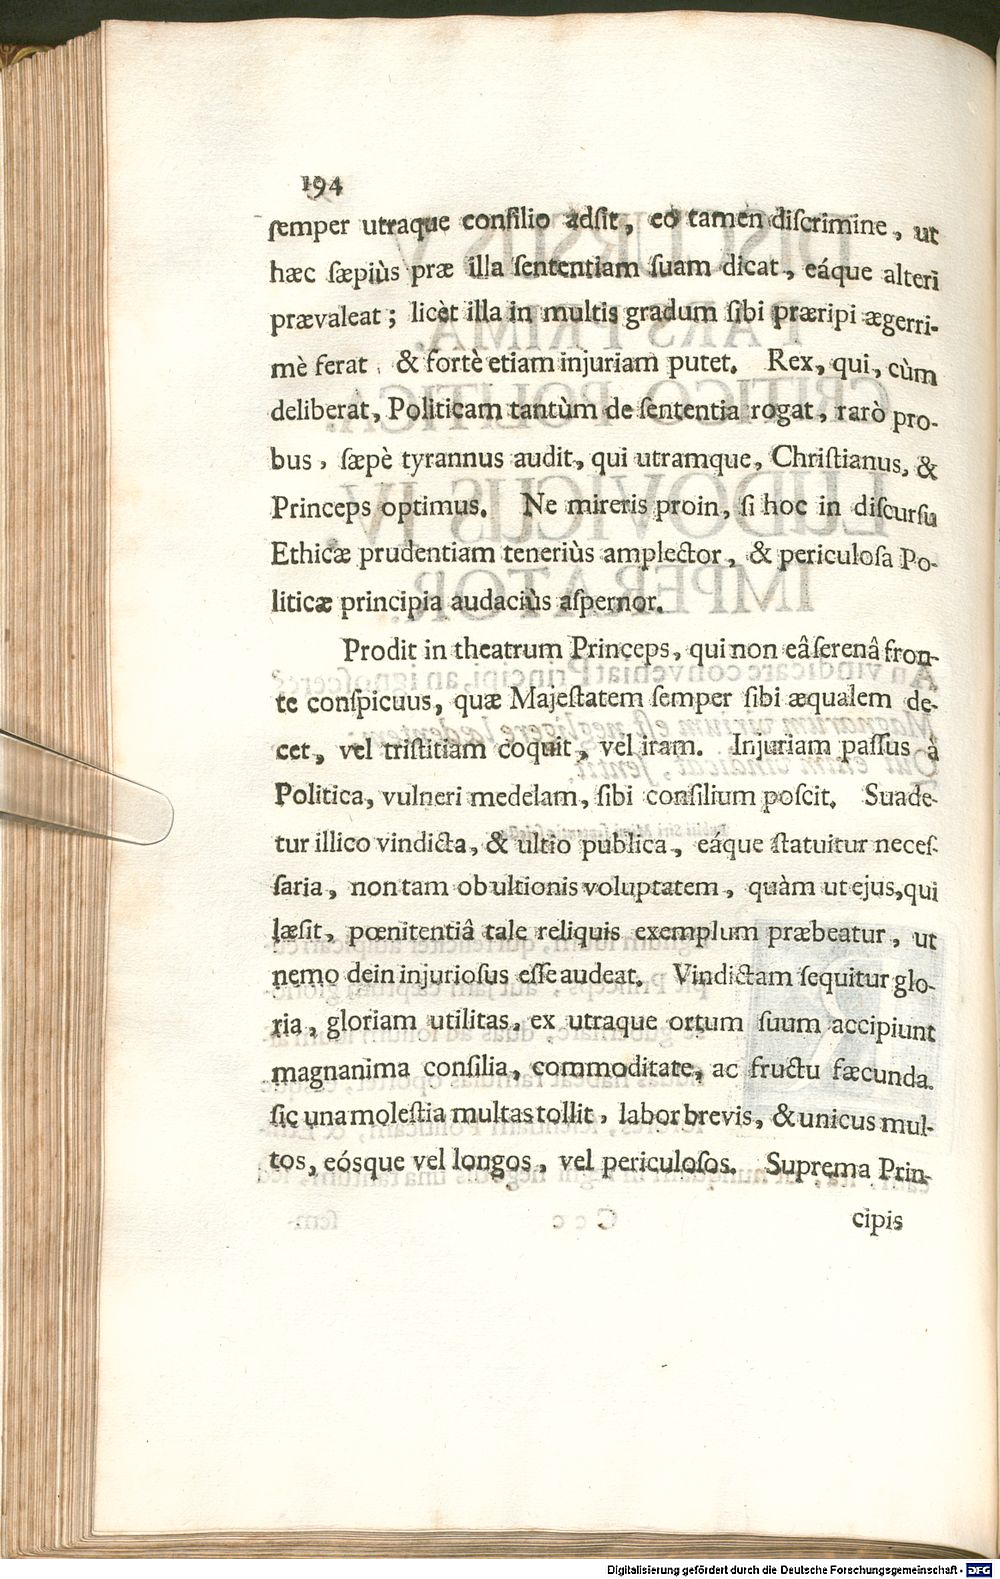 194
semper utraque consilio adsit, eò tamen discrimine, ut
hæc sæpiùs præ illa sententiam suam dicat, eáque alteri
prævaleat; licèt illa in multis gradum sibi præripi ægerri-
mè ferat, & fortè etiam injuriam putet. Rex, qui, cùm
deliberat, Politicam tantùm de sententia rogat, rarò pro-
bus, sæpè tyrannus audit, qui utramque, Christianus, &
Princeps optimus. Ne mireris proin, si hoc in discursu
Ethicæ prudentiam teneriùs amplector, & periculosa Po-
liticæ principia audaciùs aspernor.
Prodit in theatrum Princeps, qui non eâ serenâ fron-
te conspicuus, quæ Majestatem semper sibi æqualem de-
cet, vel tristitiam coquit, vel iram. Injuriam passus à
Politica, vulneri medelam, sibi consilium poscit. Suade-
tur illico vindicta, & ultio publica, eáque statuitur neces-
saria, non tam ob ultionis voluptatem, quàm ut ejus, qui
læsit, pœnitentiâ tale reliquis exemplum præbeatur, ut
nemo dein injuriosus esse audeat. Vindictam sequitur glo-
ria, gloriam utilitas, ex utraque ortum suum accipiunt
magnanima consilia, commoditate, ac fructu fæcunda.
sic una molestia multas tollit, labor brevis, & unicus mul-
tos, eósque vel longos, vel periculosos. Suprema Prin-
cipis
Digitalisierung gefördert durch die Deutsche Forschungsgemeinschaft - DFG